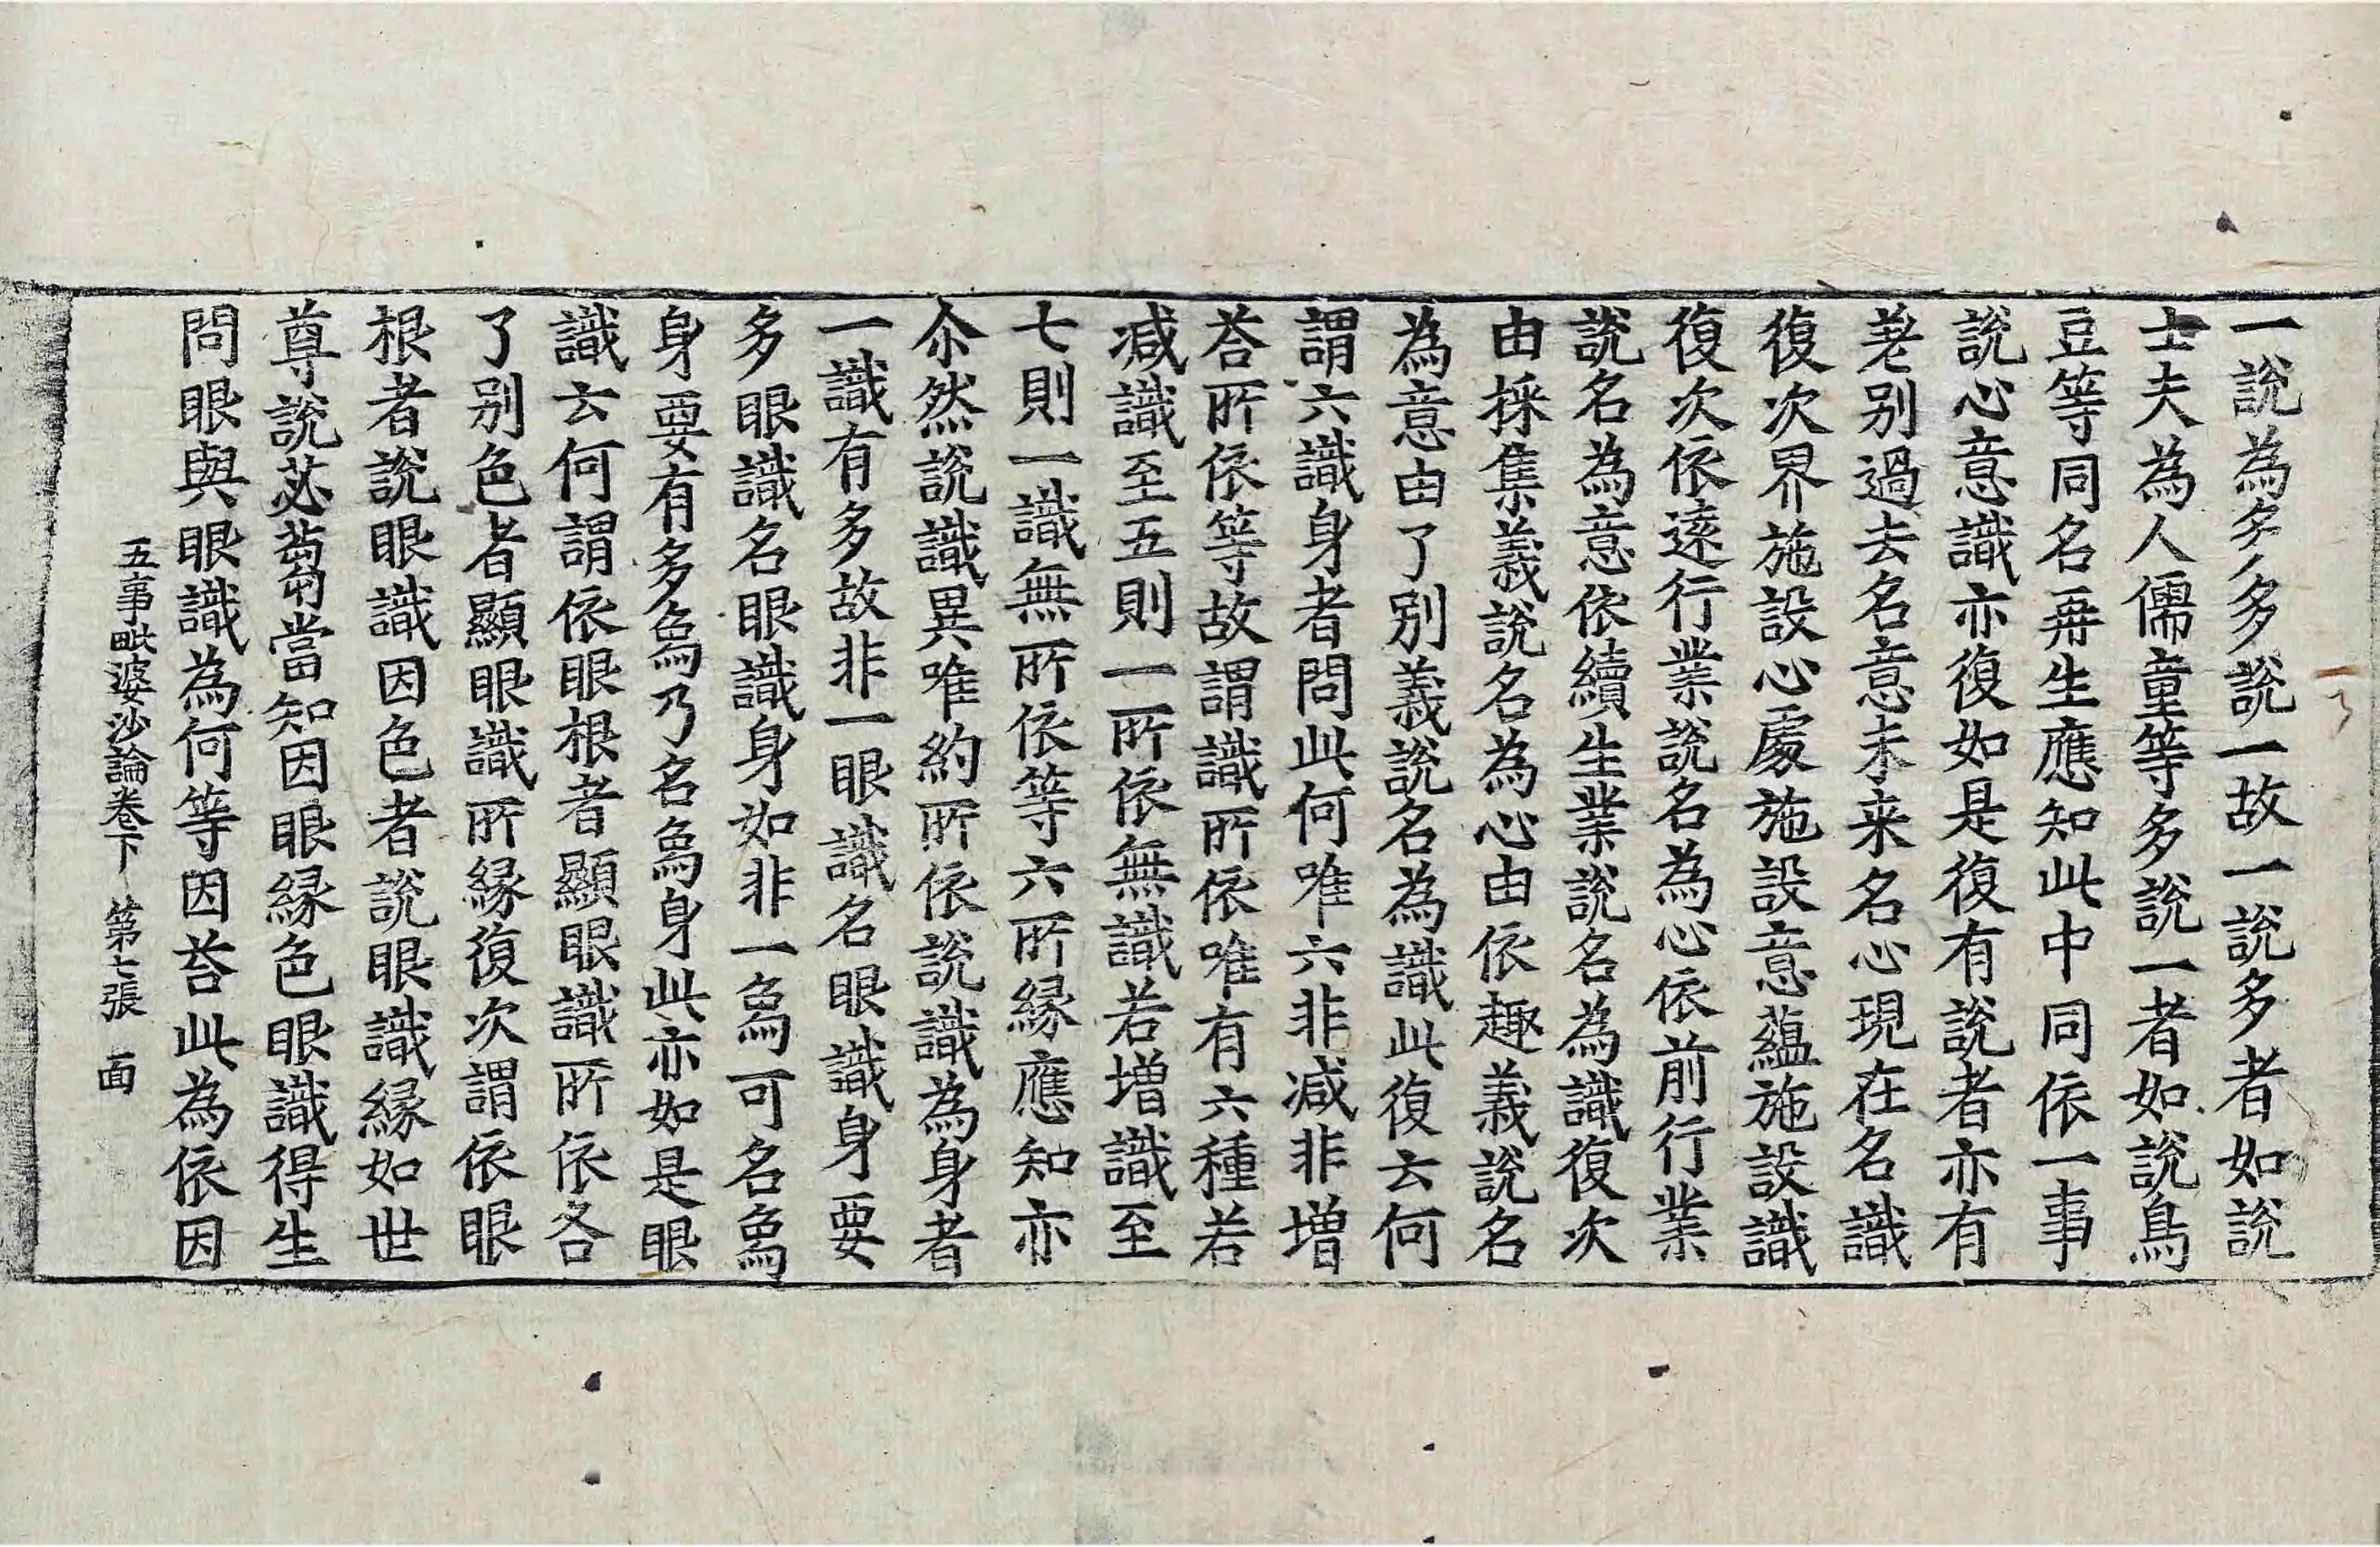 一說為多多說一故一說多者如說
士夫為人儒童等多說一者如說烏
豆等同名再生應知此中同依一事
說心意識亦復如是復有說者亦有
差別過去名意未来名心現在名識
復次界施設心處施設意蘊施設識
復次依遠行業說名為心依前行業
說名為意依續生業說名為識復次
由採集義說名為心由依趣義說名
為意由了別義說名為識此復云何
謂六識身者問此何唯六非減非增
荅所依等故謂識所依唯有六種若
減識至五則一所依無識若增識至
七則一識無所依等六所緣應知亦
尒然說識異唯約所依說識為身者
一識有多故非一眼識名眼識身要
多眼識名眼識身如非一烏可名烏
身要有多烏乃名烏身此亦如是眼
識云何謂依眼根者顯眼識所依各
了別色者顯眼識所緣復次謂依眼
根者說眼識因色者說眼識緣如世
尊說苾蒭當知因眼緣色眼識得生
問眼與眼識為何等因荅此為依因
五事毗婆沙論卷下 第七張 面